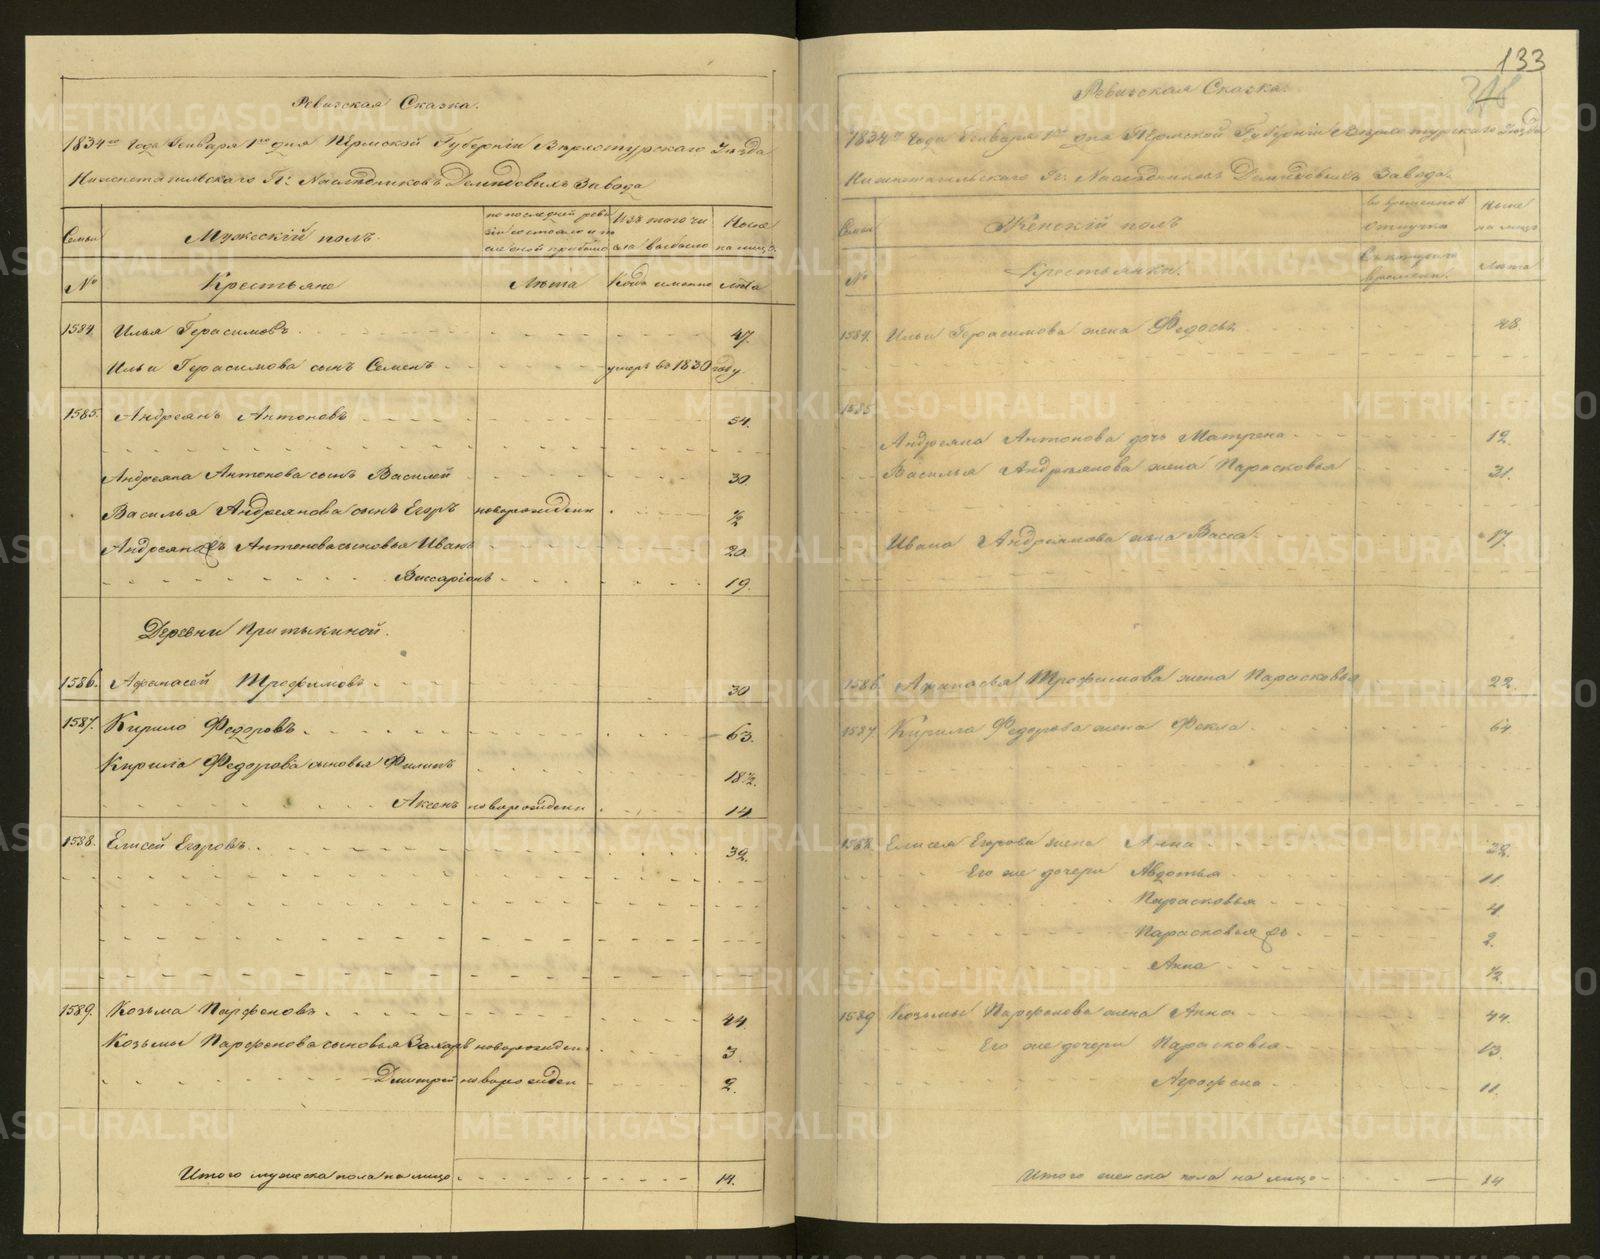 Ревизская Сказка.
1834го Года Генваря 1го дня Пермской Губерніи Верхотурскаго Уезда
Нижнетагильскаго Гг: Наследниковъ Демидовыхъ Завода
Семьи Мужескій полъ. по последней ревизіи состояло и после оной прибыло Изъ того числа выбыло Ныне на лицо
№ Крестьяне Лета Когда именно Лета
1584. Илья Герасимовъ 47.
Ильи Герасимова сынъ Семенъ умеръ въ 1830 году.
1585. Андреянъ Антоновъ 54.
Андреяна Антонова сынъ Василей 30.
Василья Андреянова сынъ Егоръ новорожденн ½
Андреяна Антонова сыновья Иванъ 20.
Виссаріонъ 19.
Деревни Притыкиной.
1586. Афанасей Трофимовъ 30
1587. Кирило Федоровъ 63.
Кирила Федорова сыновья Филипъ 18½.
Аксенъ новорожденн 14
1588. Елисей Егоровъ 32.
1589. Козьма Парфеновъ 44.
Козьмы Парфенова сыновья Захаръ новорожден 3.
Дмитрей новорожден 2.
Итого мужеска пола на лицо 14.
133
Ревизская Сказка.
1834го Года Генваря 1го дня Пермской Губерніи Верхотурскаго Уезда
Нижнетагильскаго Гг: Наследниковъ Демидовыхъ Завода.
Семьи Женскій полъ во временной отлучке Ныне на лицо
№ Крестьянки. Съ котораго времени. Лета
1584. Ильи Герасимова жена Федосья 48.
1585
Андреяна Антонова дочь Матрена 12.
Василья Андреянова жена Парасковья 31.
Ивана Андреянова жена Васса 17.
1586. Афанасья Трофимова жена Парасковья 22.
1587 Кирила Федорова жена Фекла 64
1588. Елисея Егорова жена Анна 32.
Его же дочери Авдотья 11
Парасковья 4
Парасковья 2я 2.
Анна ½
1589 Козьмы Парфенова жена Анна 44.
Его же дочери Парасковья 13.
Агрофена 11.
Итого женска пола на лицо 14
METRIKI.GASO-URAL.RU